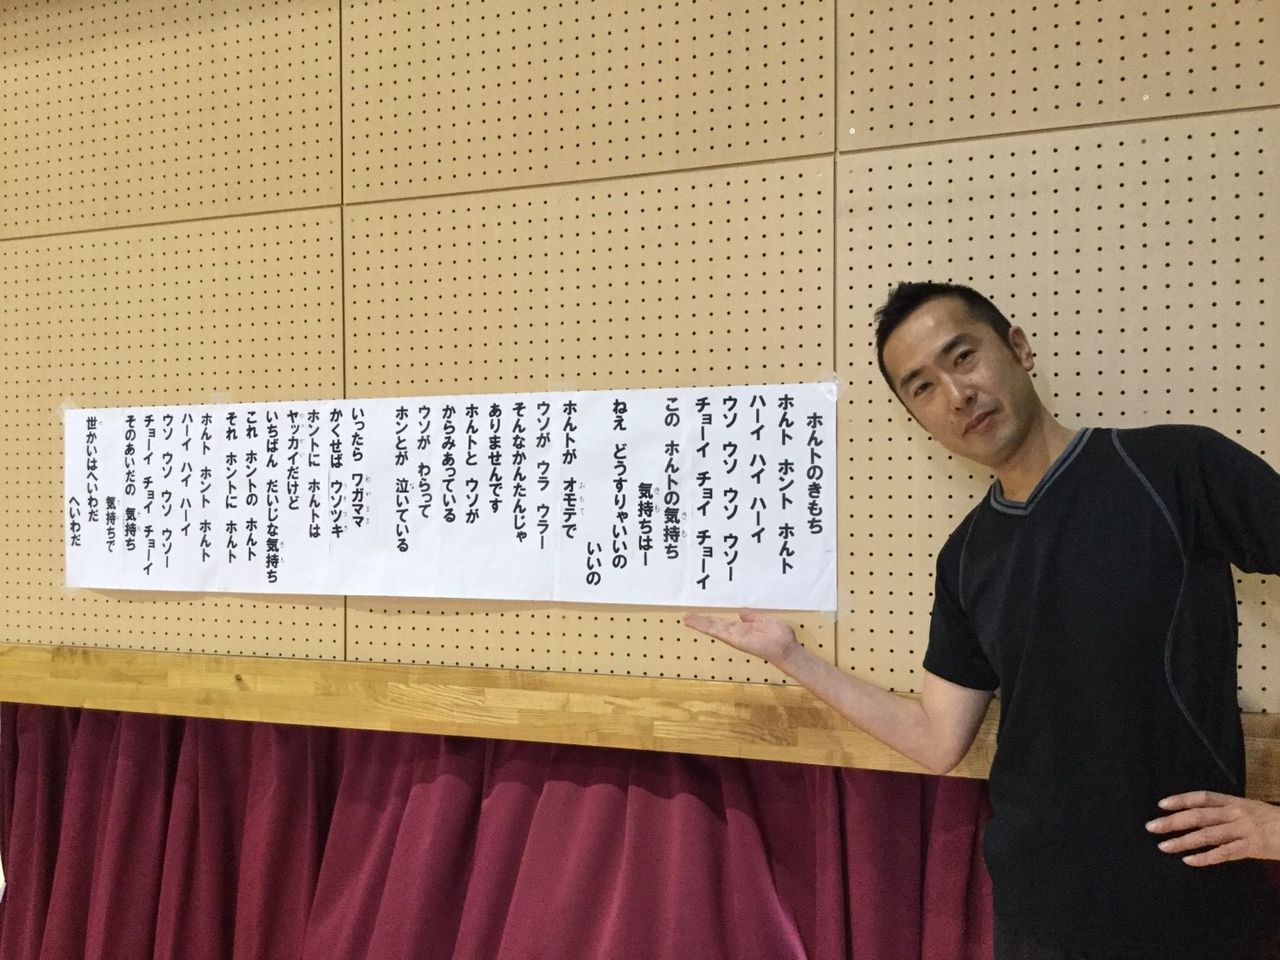 ホんトのきもち
ホんト ホント ホんト
ハーイ ハイ ハーイ
ウソ ウソ ウソ ウソー
チョーイ チョイ チョーイ
この ホんトの気持ち
気持ちはー
ねえ どうすりゃいいの
いいの
ホんトが オモテで
ウソが ウラ ウラー
そんなかんたんじゃ
ありませんです
ホんトと ウソが
からみあっている
ウソが わらって
ホンとが 泣いている
いったら ワガママ
かくせば ウソツキ
ホントに ホんトは
ヤッカイだけど
いちばん だいじな気持ち
これ ホントの ホんト
それ ホントに ホんト
ホんト ホント ホんト
ハーイ ハイ ハーイ
ウソ ウソ ウソ ウソー
チョーイ チョイ チョーイ
そのあいだの 気持ち
気持ちで
世かいはへいわだ
へいわだ